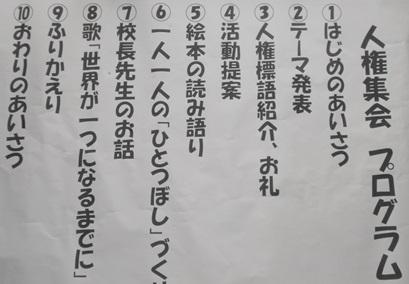 人権集会 プログラム
①はじめのあいさつ
②テーマ発表
③人権標語紹介、お礼
④活動提案
⑤絵本の読み語り
⑥一人一人の「ひとつぼし」づく
⑦校長先生のお話
⑧歌「世界が一つになるまでに」
⑨ふりかえり
⑩おわりのあいさつ